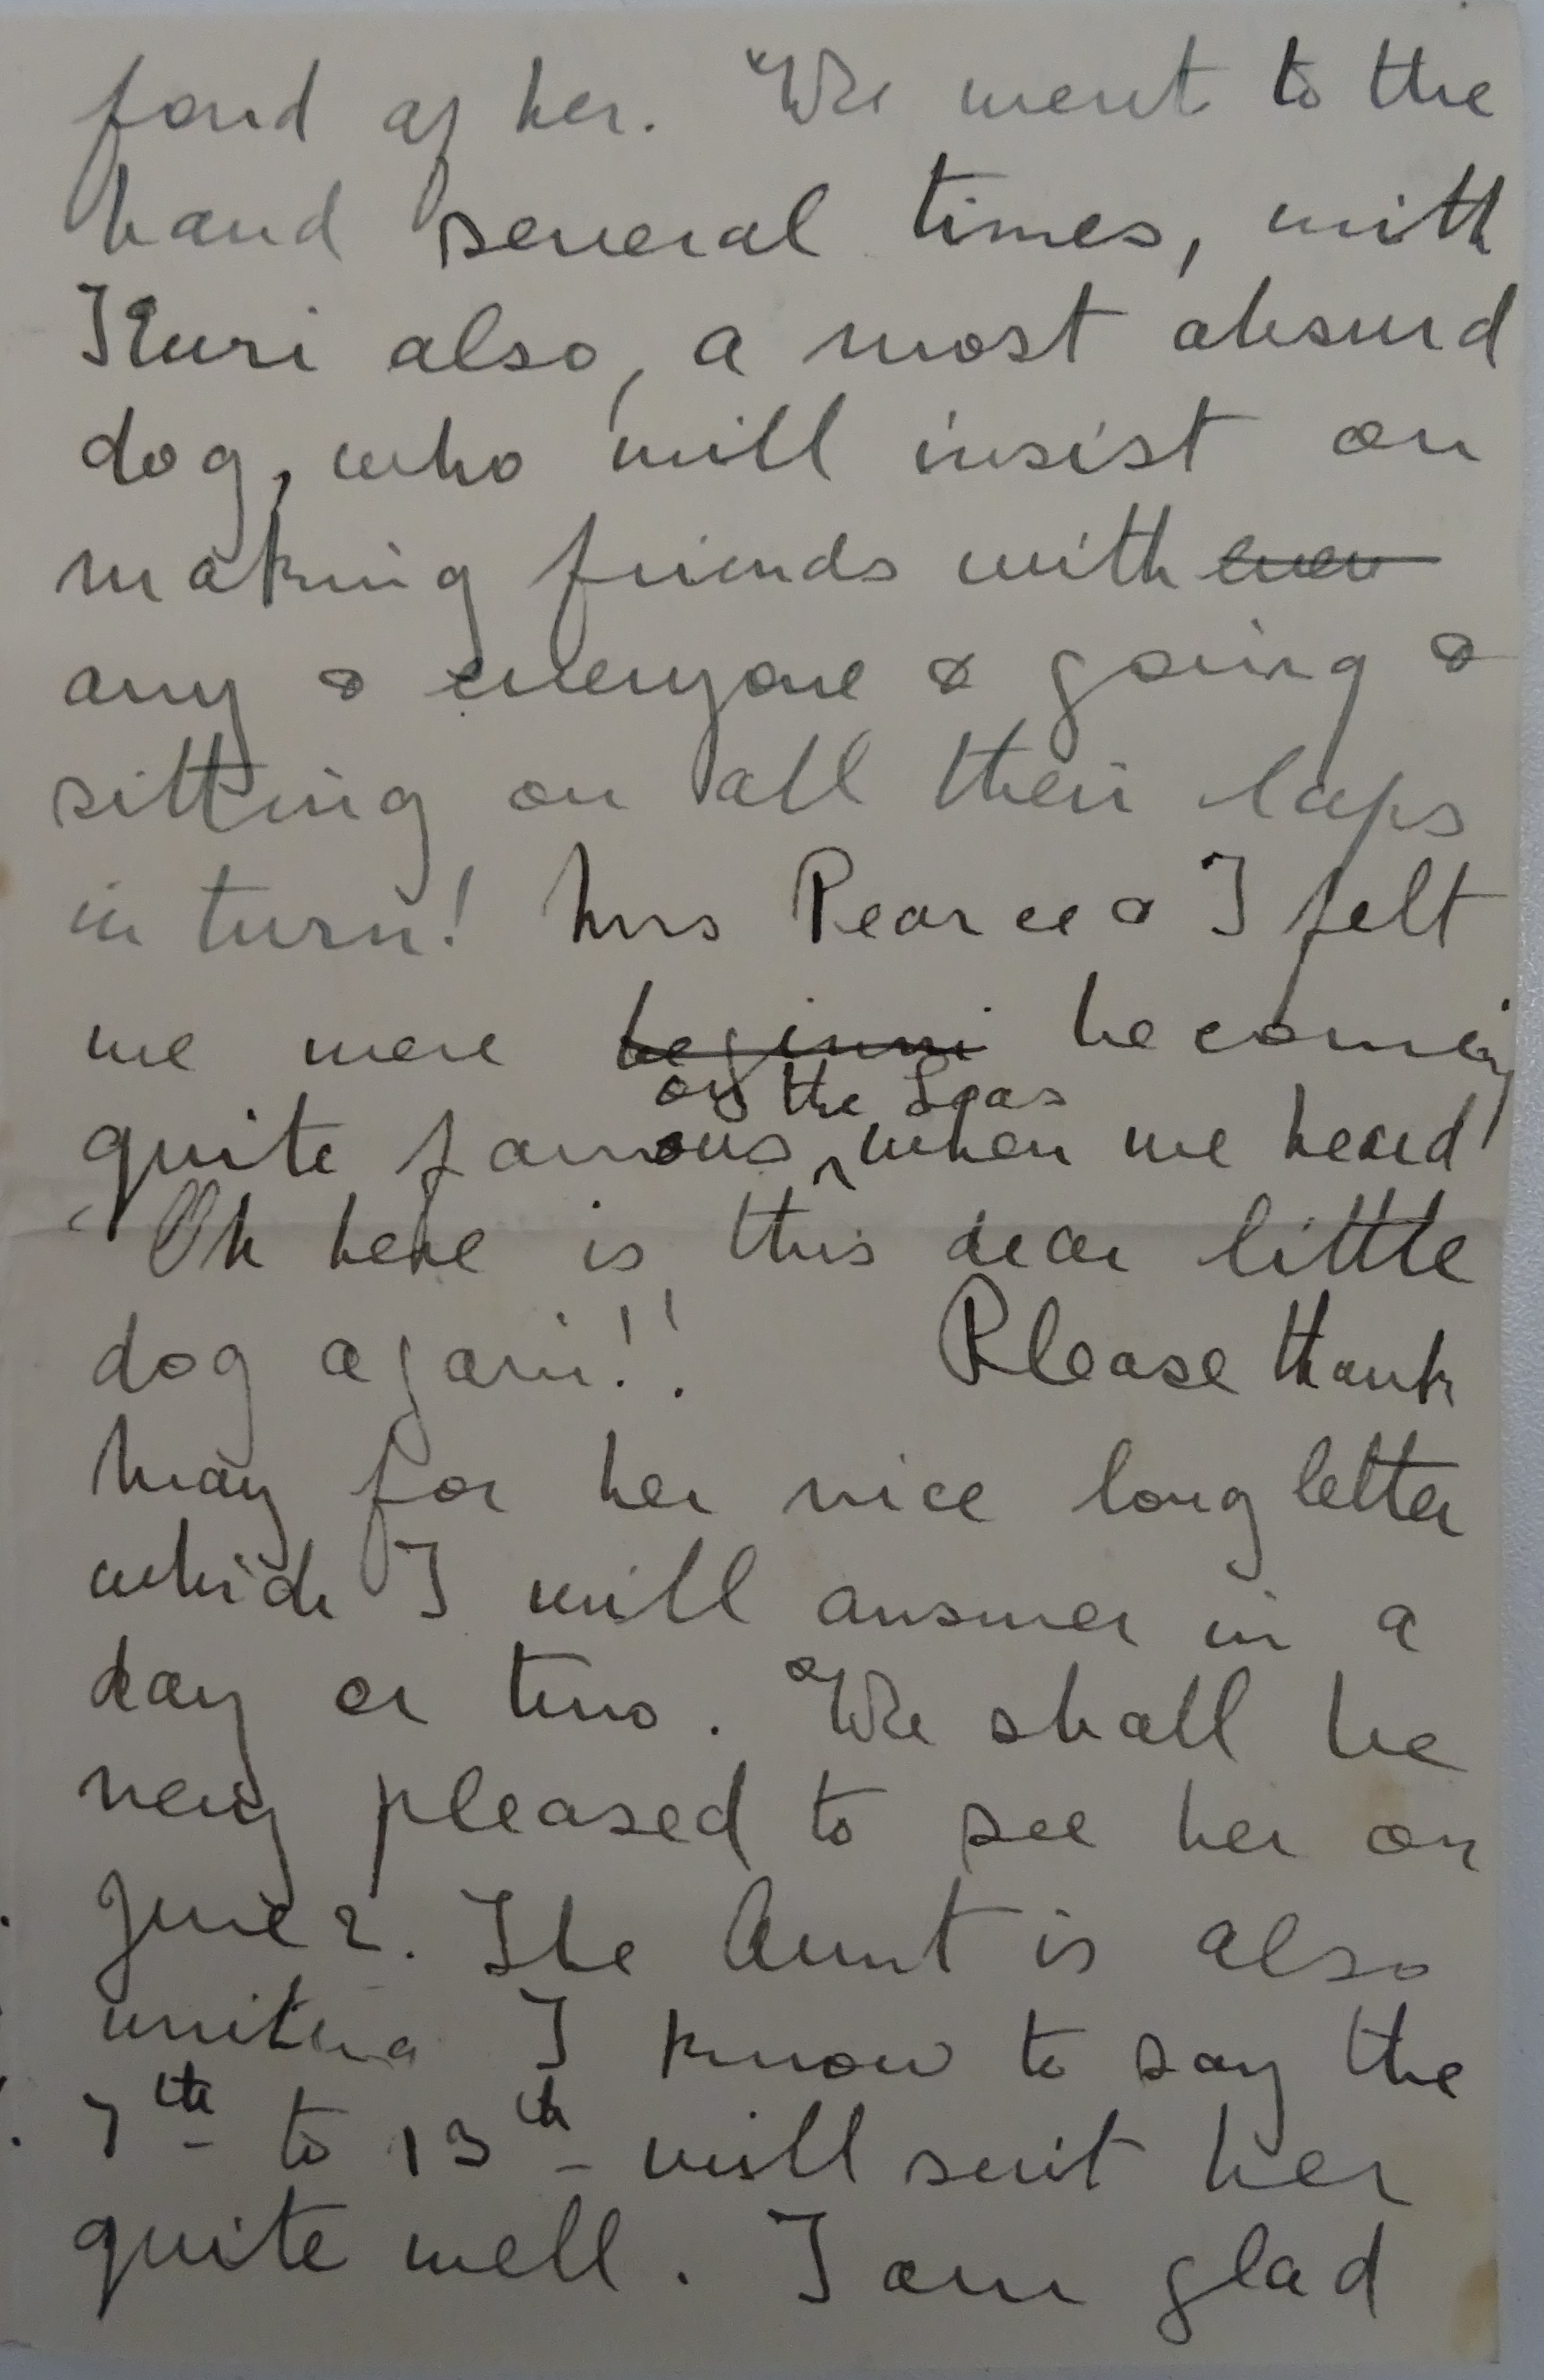 fond of her. We went to the
band several times, with
Kuri also, a most absurd
dog, who will insist on
making friends with ever
any & everyone & going &
sitting on all their laps
in turn! Mrs Pearce & I felt
we were beginni becoming
on the Leas
quite famous, when we heard
"Oh here is this dear little
dog again!! Please thank
May for her nice long letter
which I will answer in a
day or two. We shall be
very pleased to see her on
June 2. The Aunt is also
writing I know to say the
7th to 13th will suit her
quite well. I am glad